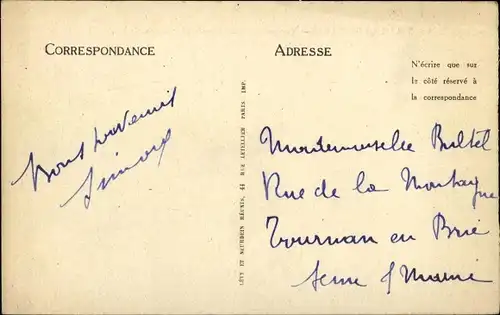 CORRESPONDANCE
ADRESSE
N'écrire que sur
le côté réservé à
la correspondance
Bons souvenirs
LÉVY ET NEURDEIN RÉUNIS, 44 RUE LETELLIER PARIS IMP.
Mademoiselle Bultel
Rue de la Montagne
Tournan en Brie
Seine & Marne